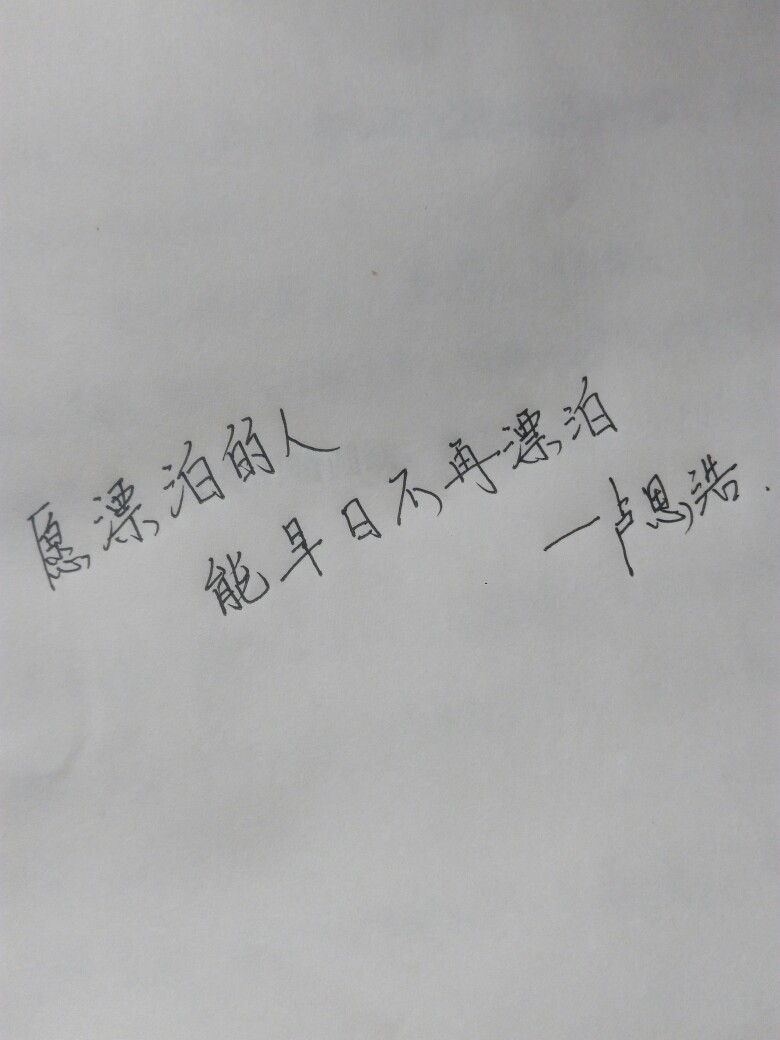 愿漂泊的人
能早日不再漂泊
—卢思浩.